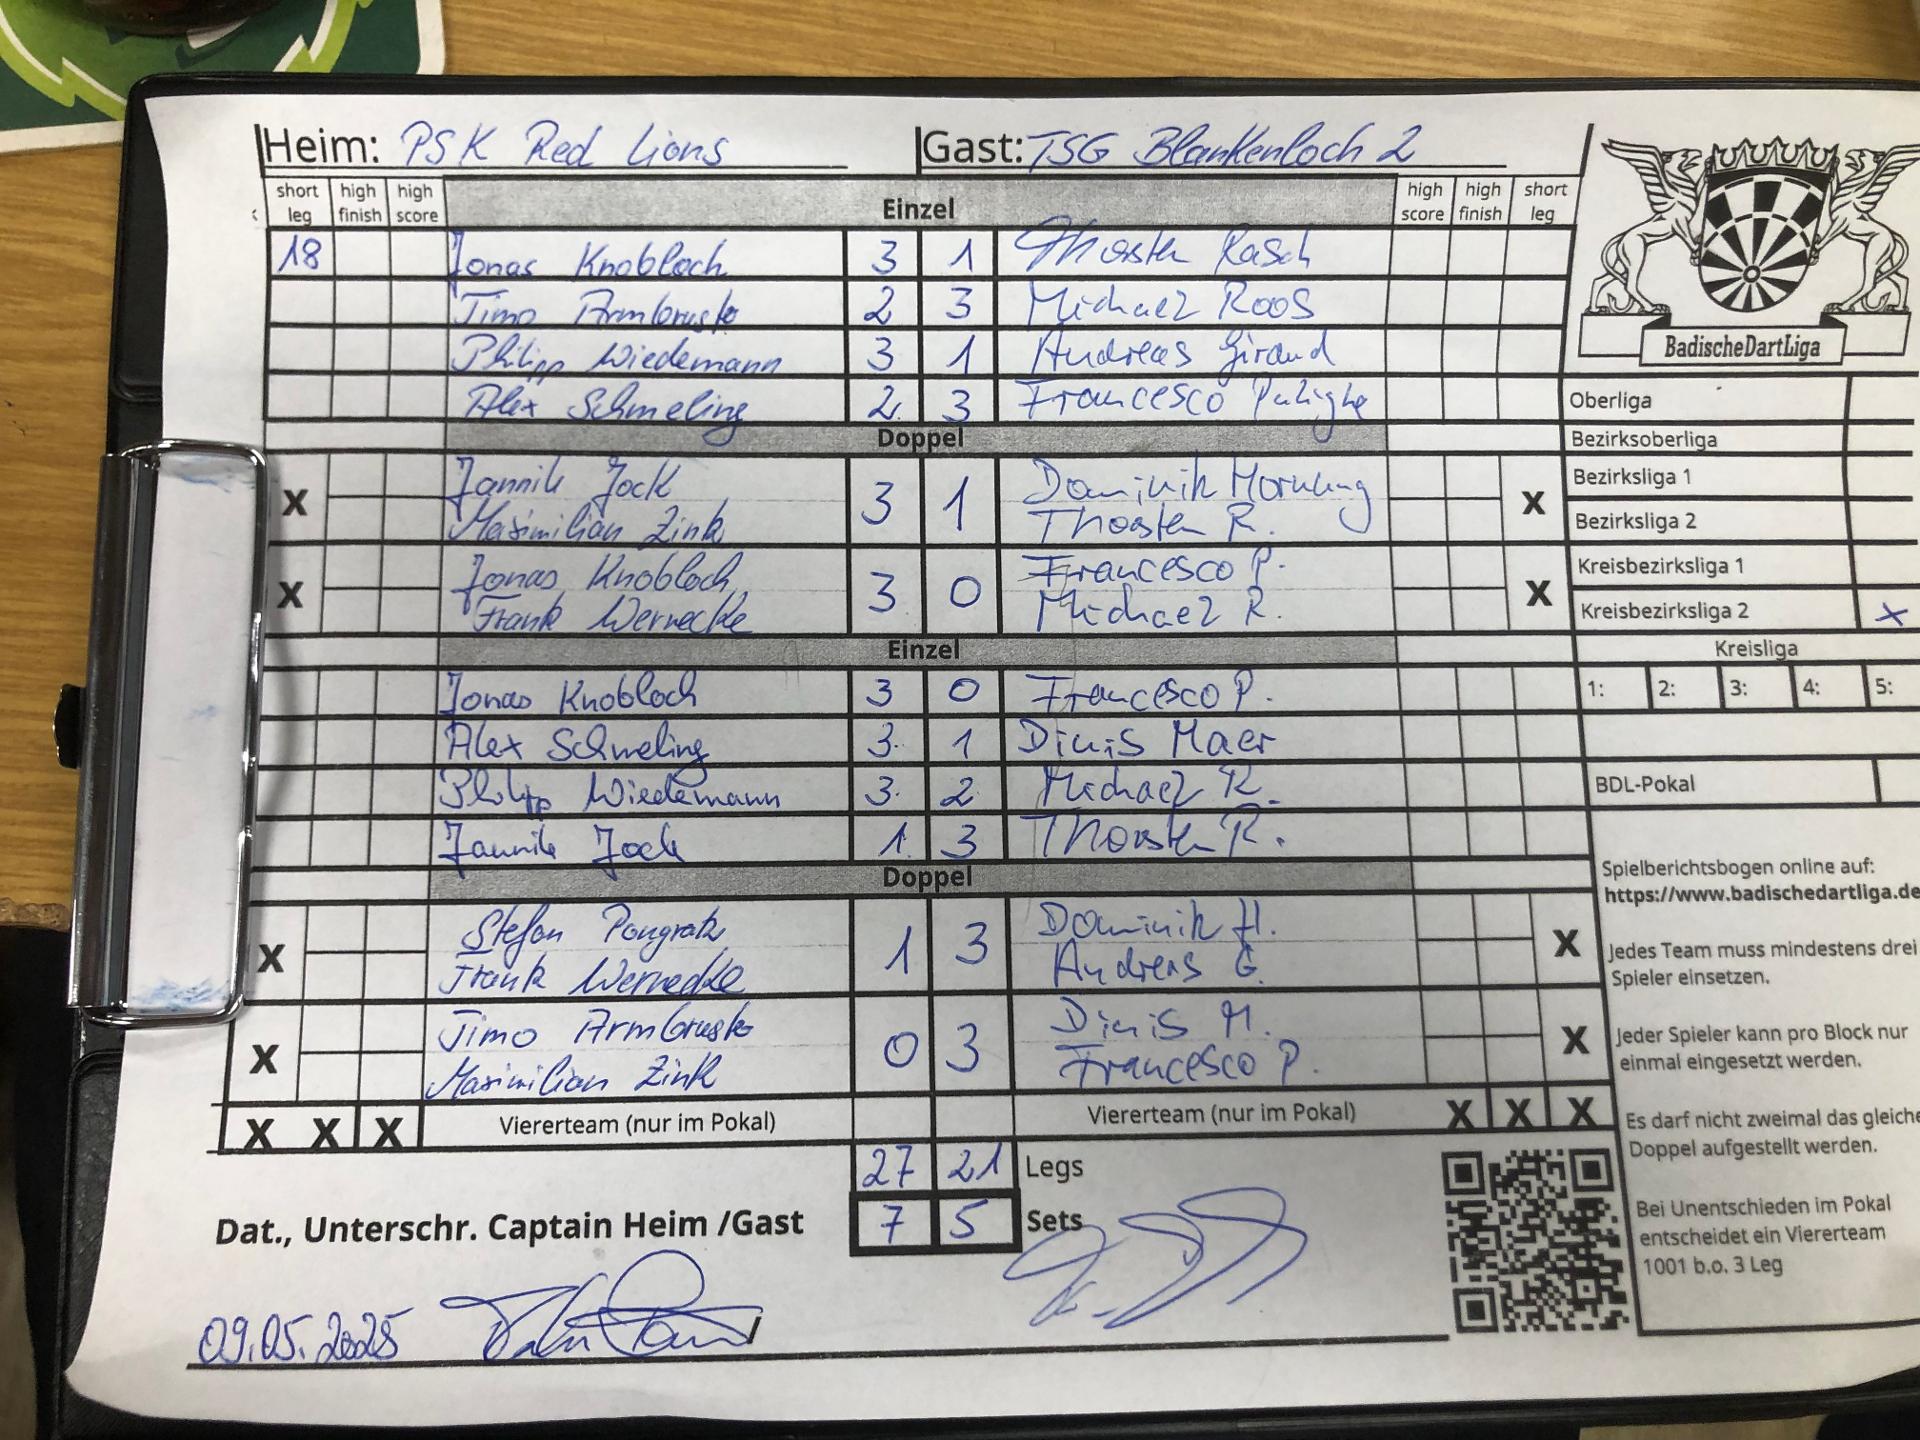 Heim: PSK Red Lions Gast: TSG Blankenloch 2
short leg high finish high score Einzel high score high finish short leg
18 Jonas Knobloch 3 1 Thorsten Rasch
Timo Armbruster 2 3 Michael Roos
Philipp Wiedemann 3 1 Andreas Giraud
Alex Schmeling 2 3 Francesco Pulighe
Doppel
Jannik Jock 3 1 Dominik Hornung
X Maximilian Zink Thorsten R. X
Jonas Knobloch 3 0 Francesco P.
X Frank Wernecke Michael R. X
Einzel
Jonas Knobloch 3 0 Francesco P.
Alex Schmeling 3 1 Dinis Maer
Philipp Wiedemann 3 2 Michael R.
Jannik Jock 1 3 Thorsten R.
Doppel
Stefan Pongratz 1 3 Dominik H.
X Frank Wernecke Andreas G. X
Timo Armbruster 0 3 Dinis M.
X Maximilian Zink Francesco P. X
X X X Viererteam (nur im Pokal) Viererteam (nur im Pokal) X X X
27 21 Legs
Dat., Unterschr. Captain Heim /Gast 7 5 Sets
09.05.2025
BadischeDartLiga
Oberliga
Bezirksoberliga
Bezirksliga 1
Bezirksliga 2
Kreisbezirksliga 1
Kreisbezirksliga 2 x
Kreisliga
1: 2: 3: 4: 5:
BDL-Pokal
Spielberichtsbogen online auf:
https://www.badischedartliga.de
Jedes Team muss mindestens drei
Spieler einsetzen.
Jeder Spieler kann pro Block nur
einmal eingesetzt werden.
Es darf nicht zweimal das gleiche
Doppel aufgestellt werden.
Bei Unentschieden im Pokal
entscheidet ein Viererteam
1001 b.o. 3 Leg